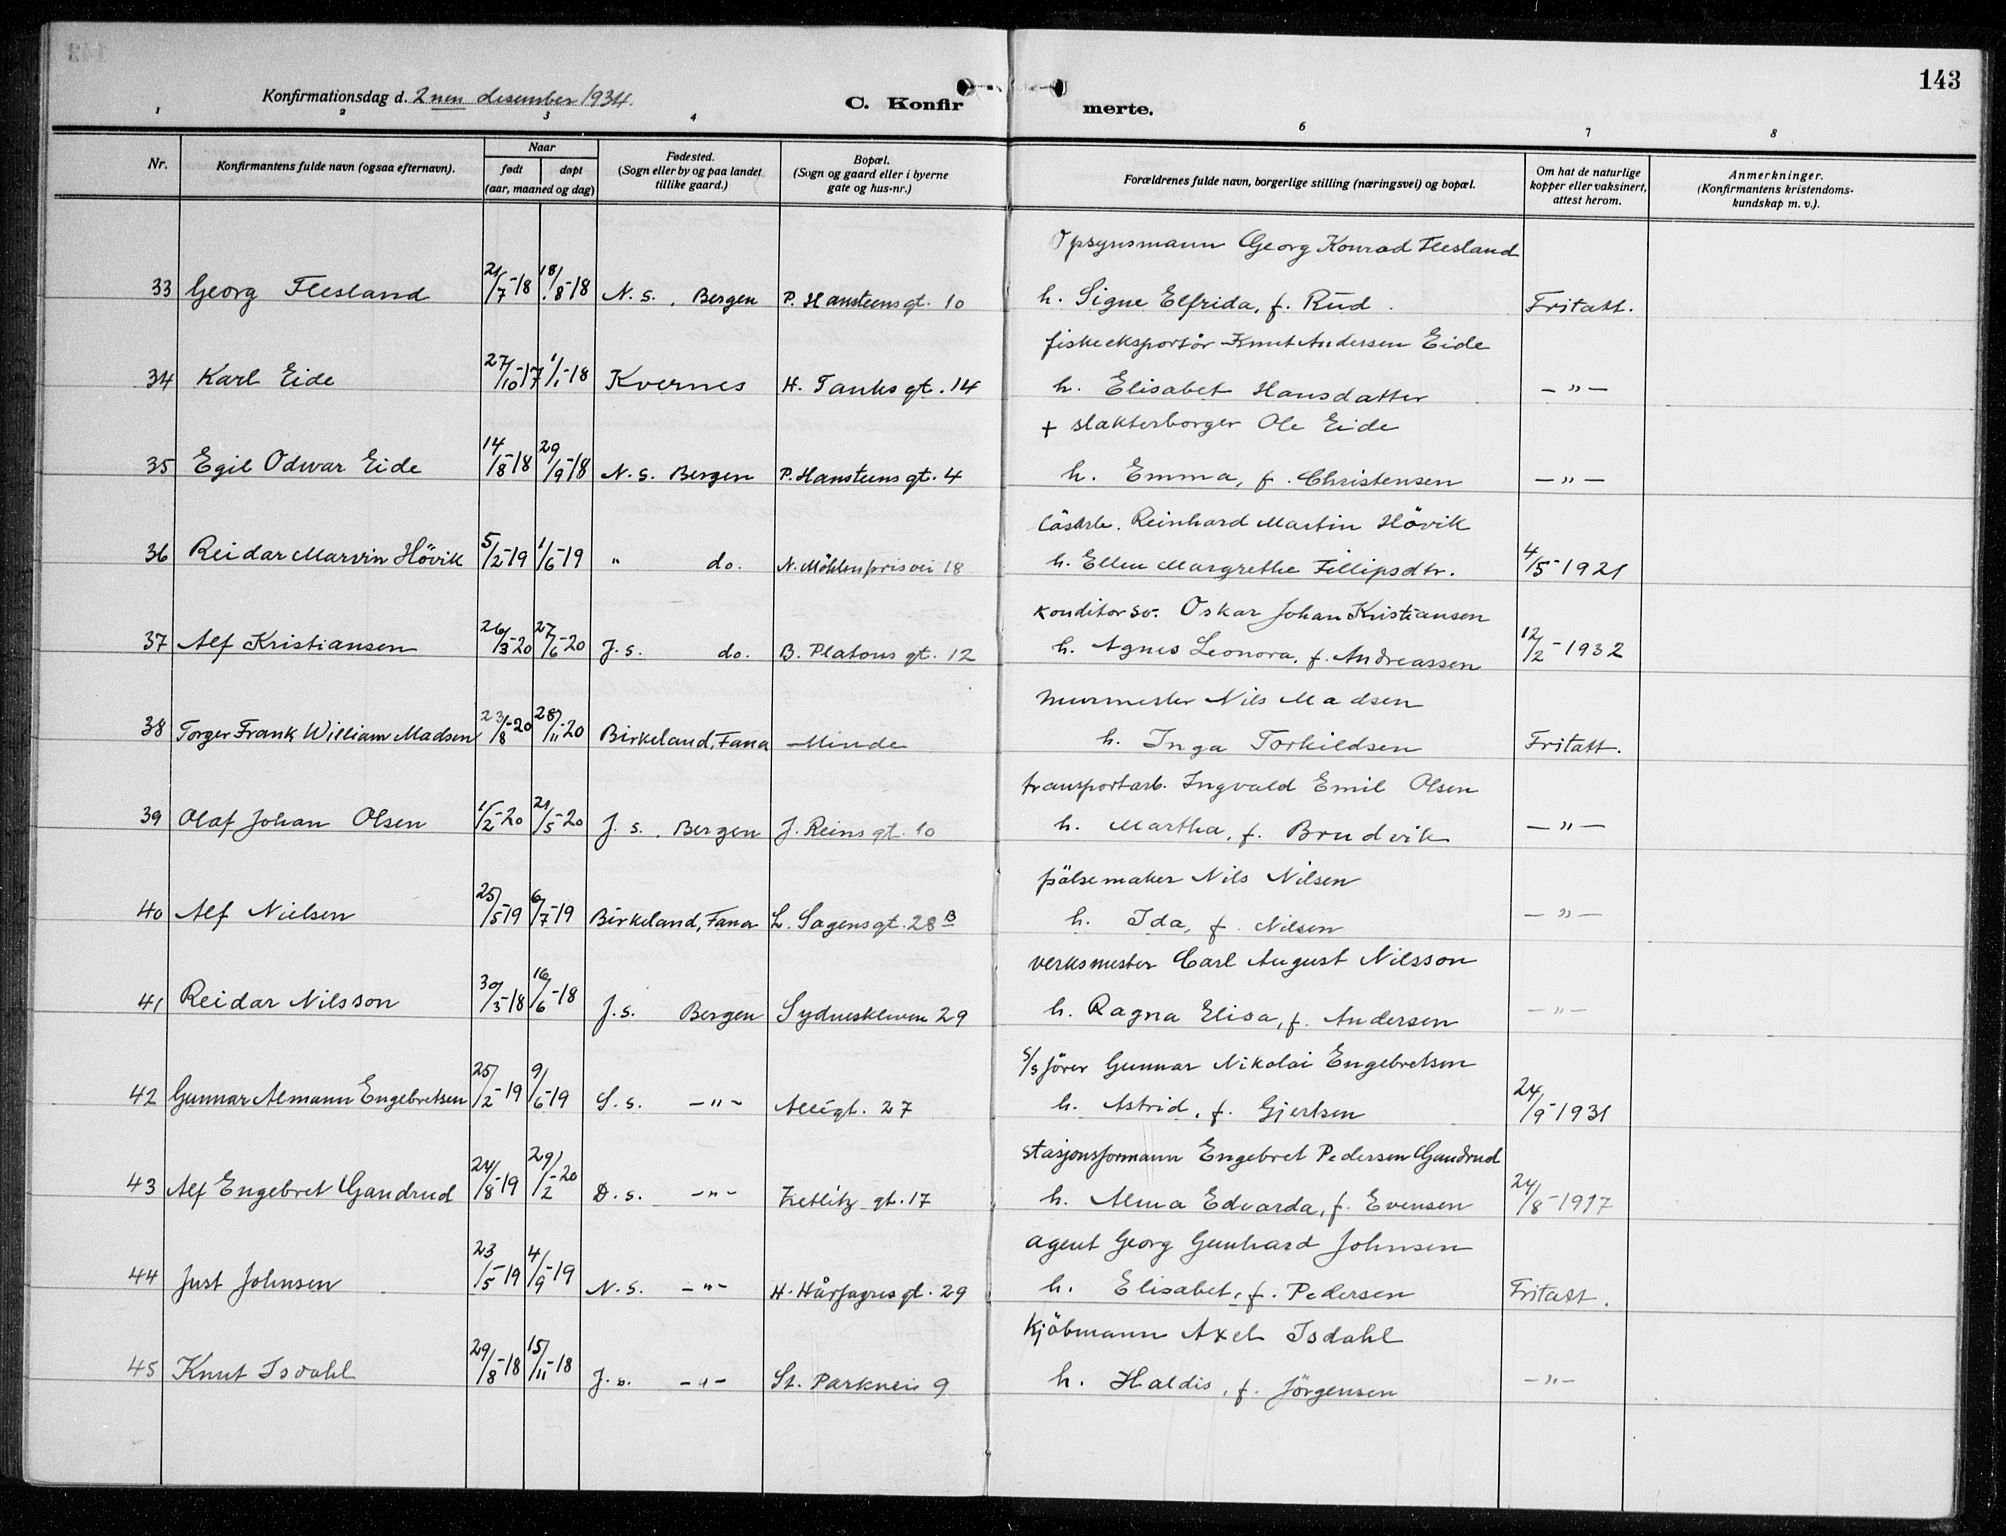 143
Konfirmationsdag d. 2nen desember 1934.
C. Konfirmerte.
1 2 3 4 6 7 8
Nr. Konfirmantens fulde navn (ogsaa efternavn). Naar født døpt (aar, maaned og dag) Fødested. (Sogn eller by og paa landet tillike gaard.) Bopæl. (Sogn og gaard eller i byerne gate og hus-nr.) Forældrenes fulde navn, borgerlige stilling (næringsvei) og bopæl. Om hat de naturlige kopper eller vaksinert, attest herom. Anmerkninger. (Konfirmantens kristendoms-kundskap m. v.).
Opsynsmann Georg Konrad Flesland
33 Georg Flesland 21/7-18 18/8-18 N. s. Bergen P. Hansteens gt. 10 h. Signe Elfrida, f. Rud. Fritatt.
fiskeeksportör Knut Andersen Eide
34 Karl Eide 27/10-17 1/1-18 Kvernes H. Tanks gt. 14 h. Elisabet Hansdatter — " —
+ slakterborger Ole Eide
35 Egil Odvar Eide 14/8-18 29/9-18 N. S. Bergen P. Hansteens gt. 4 h. Emma, f. Christensen — " —
Reinhard Martin Hövik
36 Reidar Marvin Hövik 5/2-19 1/6-19 " do. N. Möhlenprisvei 18 h. Ellen Margrethe Fillipsdtr. 4/5-1921
konditorsv. Oskar Johan Kristiansen
37 Alf Kristiansen 26/3-20 27/6-20 J. s. do. B. Platous gt. 12 h. Agnes Leonora, f. Andreassen 12/2-1932
murmester Nils Madsen
38 Torger Frank William Madsen 23/8-20 28/11-20 Birkeland, Fana Minde h. Inga Torkildsen Fritatt.
transportarb. Ingvald Emil Olsen
39 Olaf Johan Olsen 1/2-20 21/5-20 J. s. Bergen J. Reins gt. 10 h. Martha, f. Brudvik — " —
pölsemaker Nils Nilsen
40 Alf Nielsen 25/5-19 6/7-19 Birkeland, Fana L. Sagens gt. 28 B h. Ida, f. Nilsen — " —
verksmester Carl August Nilsson
41 Reidar Nilsson 30/3-18 16/6-18 J. s. Bergen Sydneskleven 29 h. Ragna Elisa, f. Andersen — " —
s/s förer Gunnar Nikolai Engebretsen
42 Gunnar Almann Engebretsen 25/2-19 9/6-19 S. s. — " — Allégt. 27 h. Astrid, f. Gjertsen 24/9-1931
stasjonsformann Engebret Pedersen Gandrud
43 Alf Engebret Gandrud 24/8-19 29/2-20 D. s. — " — Zetlitz gt. 17 h. Alma Edvarda, f. Evensen 24/8-1917
agent Georg Gunhard Johnsen
44 Just Johnsen 23/5-19 4/9-19 N. s. — " — H. Hårfagres gt. 29 h. Elisabet, f. Pedersen Fritatt.
Kjöbmann Axel Isdahl
45 Knut Isdahl 29/8-18 15/11-18 J. s. — " — St. Parkvei 9 h. Haldis, f. Jörgensen — " —